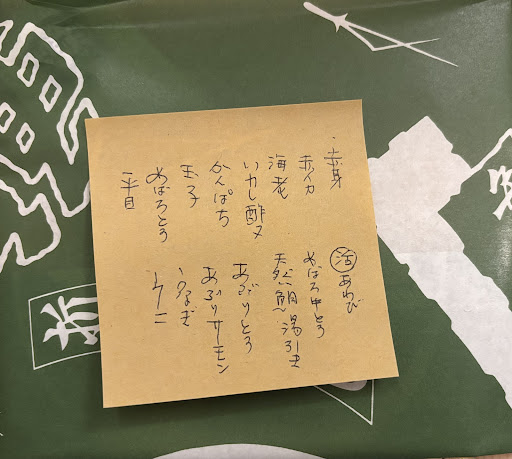 赤身
赤イカ
海老
いわし酢〆
かんぱち
玉子
めばちとろ
平目
活あわび
めばち中とろ
天然鯛湯引き
あぶりとろ
あぶりサーモン
うなぎ
ウニ